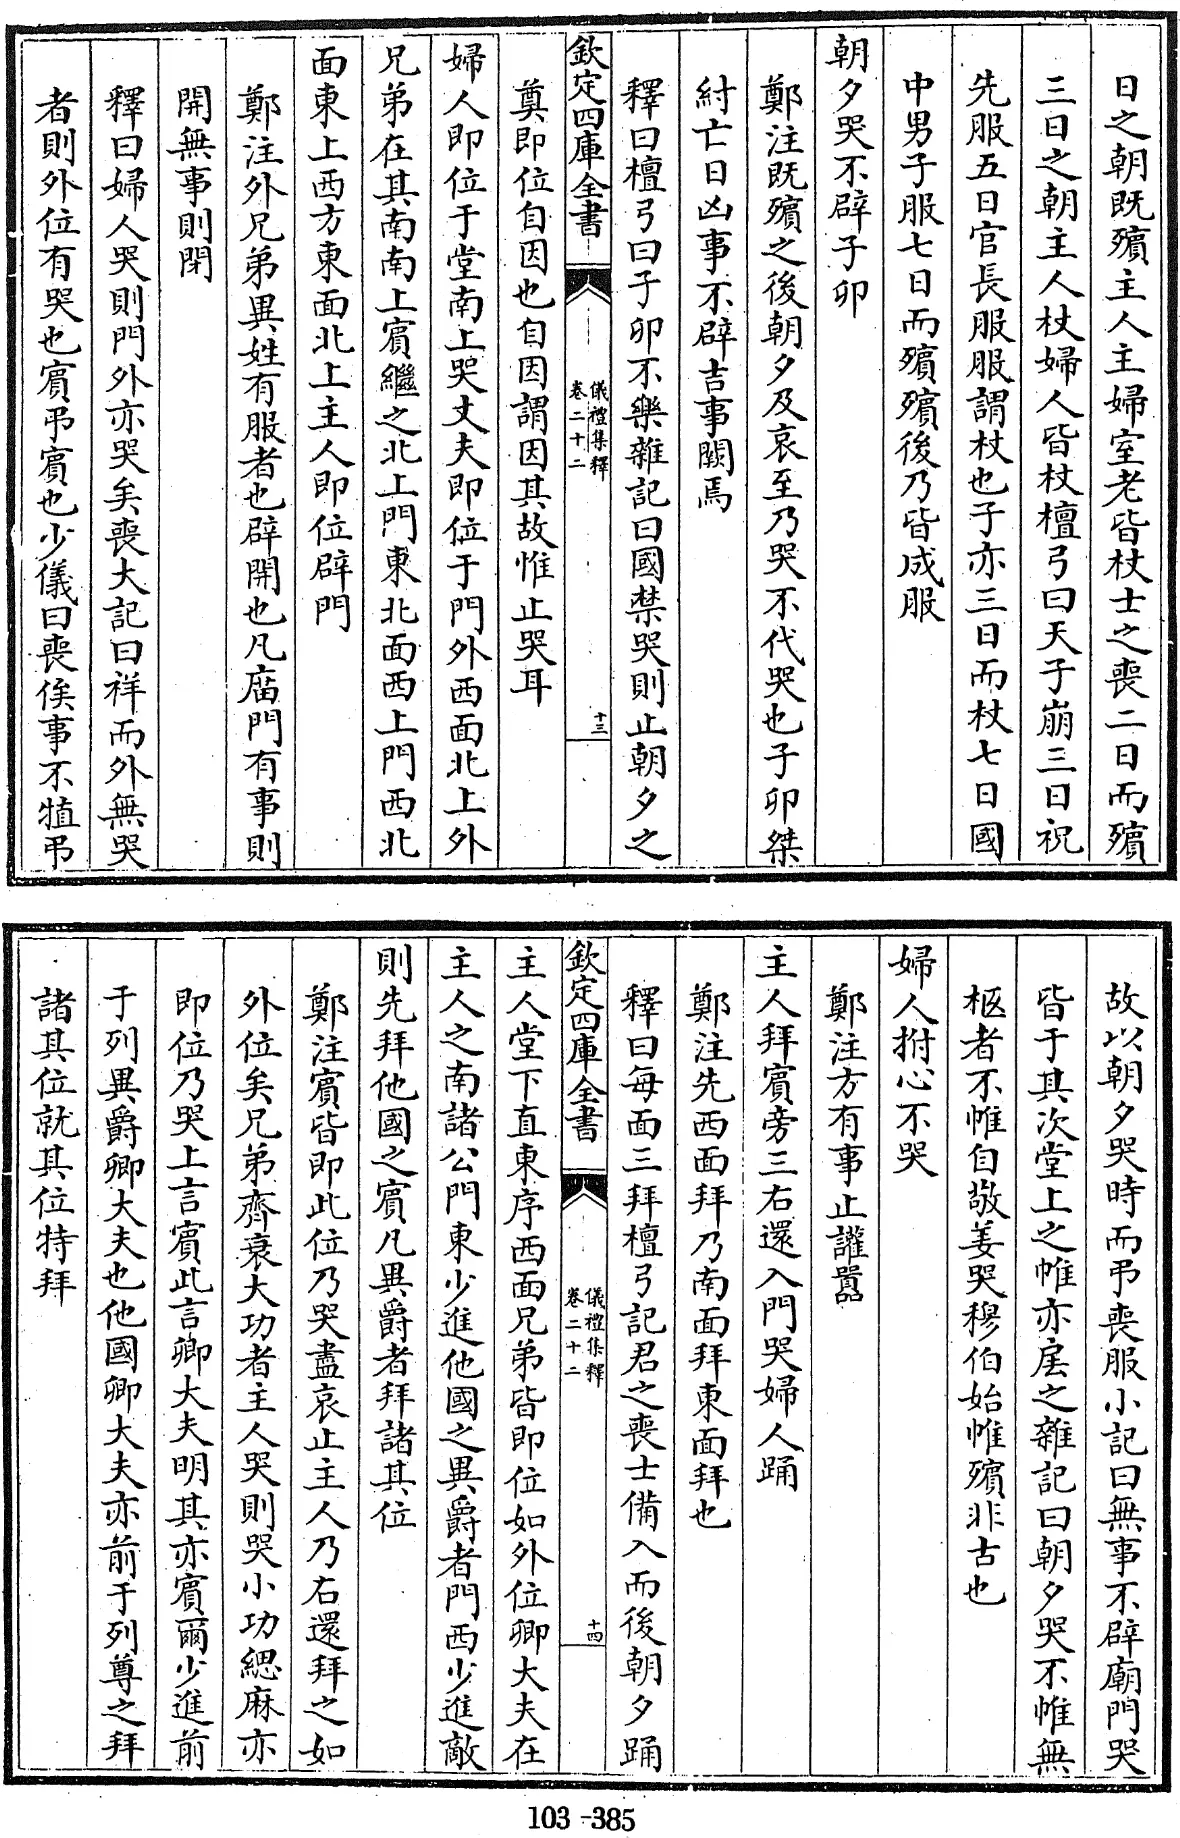 日之朝既殯主人主婦室老皆杖士之喪二日而殯
三日之朝主人杖婦人皆杖檀弓曰天子崩三日祝
先服五日官長服服謂杖也子亦三日而杖七日國
中男子服七日而殯殯後乃皆成服
朝夕哭不辟子卯
鄭注既殯之後朝夕及哀至乃哭不代哭也子卯桀
紂亡日凶事不辟吉事闕焉
釋曰檀弓曰子卯不樂雜記曰國禁哭則止朝夕之
欽定四庫全書
儀禮集釋
卷二十二
十三
奠即位自因也自因謂因其故惟止哭耳
婦人即位于堂南上哭丈夫即位于門外西面北上外
兄弟在其南南上賓繼之北上門東北面西上門西北
面東上西方東面北上主人即位辟門
鄭注外兄弟異姓有服者也辟開也凡廟門有事則
開無事則閉
釋曰婦人哭則門外亦哭矣喪大記曰祥而外無哭
者則外位有哭也賓弔賓也少儀曰喪俟事不犆弔
故以朝夕哭時而弔喪服小記曰無事不辟廟門哭
皆于其次堂上之帷亦扆之雜記曰朝夕哭不帷無
柩者不帷自敬姜哭穆伯始帷殯非古也
婦人拊心不哭
鄭注方有事止讙囂
主人拜賓旁三右還入門哭婦人踊
鄭注先西面拜乃南面拜東面拜也
釋曰每面三拜檀弓記君之喪士備入而後朝夕踊
欽定四庫全書
儀禮集釋
卷二十二
十四
主人堂下直東序西面兄弟皆即位如外位卿大夫在
主人之南諸公門東少進他國之異爵者門西少進敵
則先拜他國之賓凡異爵者拜諸其位
鄭注賓皆即此位乃哭盡哀止主人乃右還拜之如
外位矣兄弟齊衰大功者主人哭則哭小功緦麻亦
即位乃哭上言賓此言卿大夫明其亦賓爾少進前
于列異爵卿大夫也他國卿大夫亦前于列尊之拜
諸其位就其位特拜
103-385